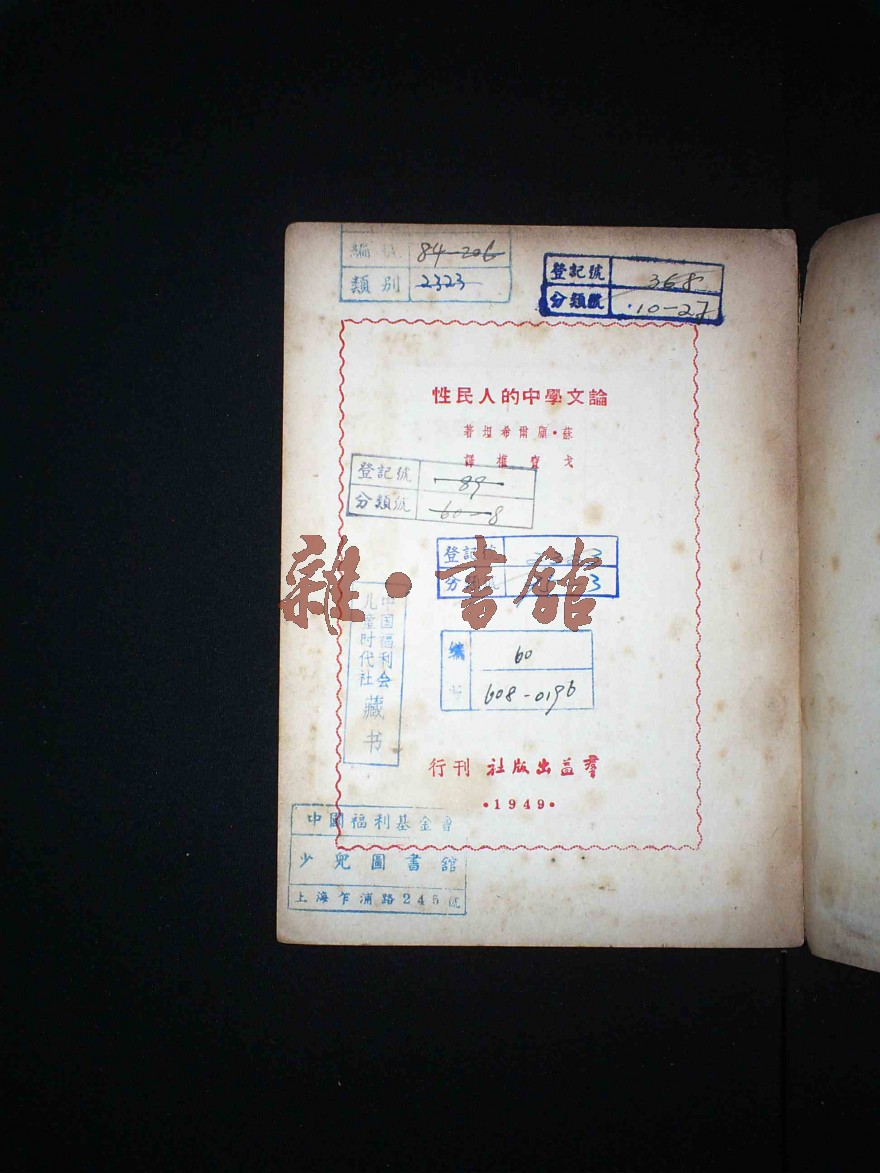 編號 84-206
類別 2323
登記號 368
分類號 ·10-27
論文學中的人民性
蘇·顧爾希坦著
戈寶權譯
登記號 89
分類號 60-8
登記號
分類號
雜·書館
中国福利会
儿童时代社
藏书
编号 60
608-0196
羣益出版社 刊行
·1949·
中國福利基金會
少兒圖書館
上海乍浦路245號